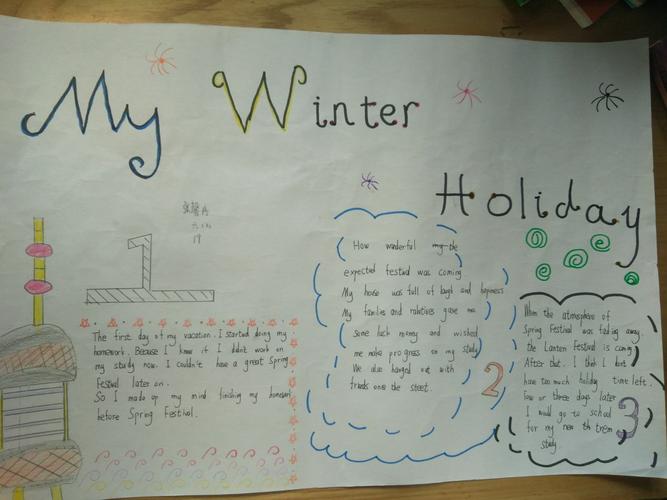 My Winter
Holiday
1
The first day of my vacation. I started doing my
homework. Because I know if I didn't work on
my study now. I couldn't have a great Spring
Festival later on.
So I made up my mind finishing my homework
before Spring Festival.
How wonderful my the
expected festival was coming
My house was full of laugh and happiness
My families and relatives gave me
some luck money and wished
me make progress on my study
We also hanged out with
friends on the street.
2
When the atmosphere of
Spring Festival was fading away
the Lantern Festival is coming
After that. I think I don't
have too much holiday time left.
two or three days later
I would go to school
for my new th trem
study
3